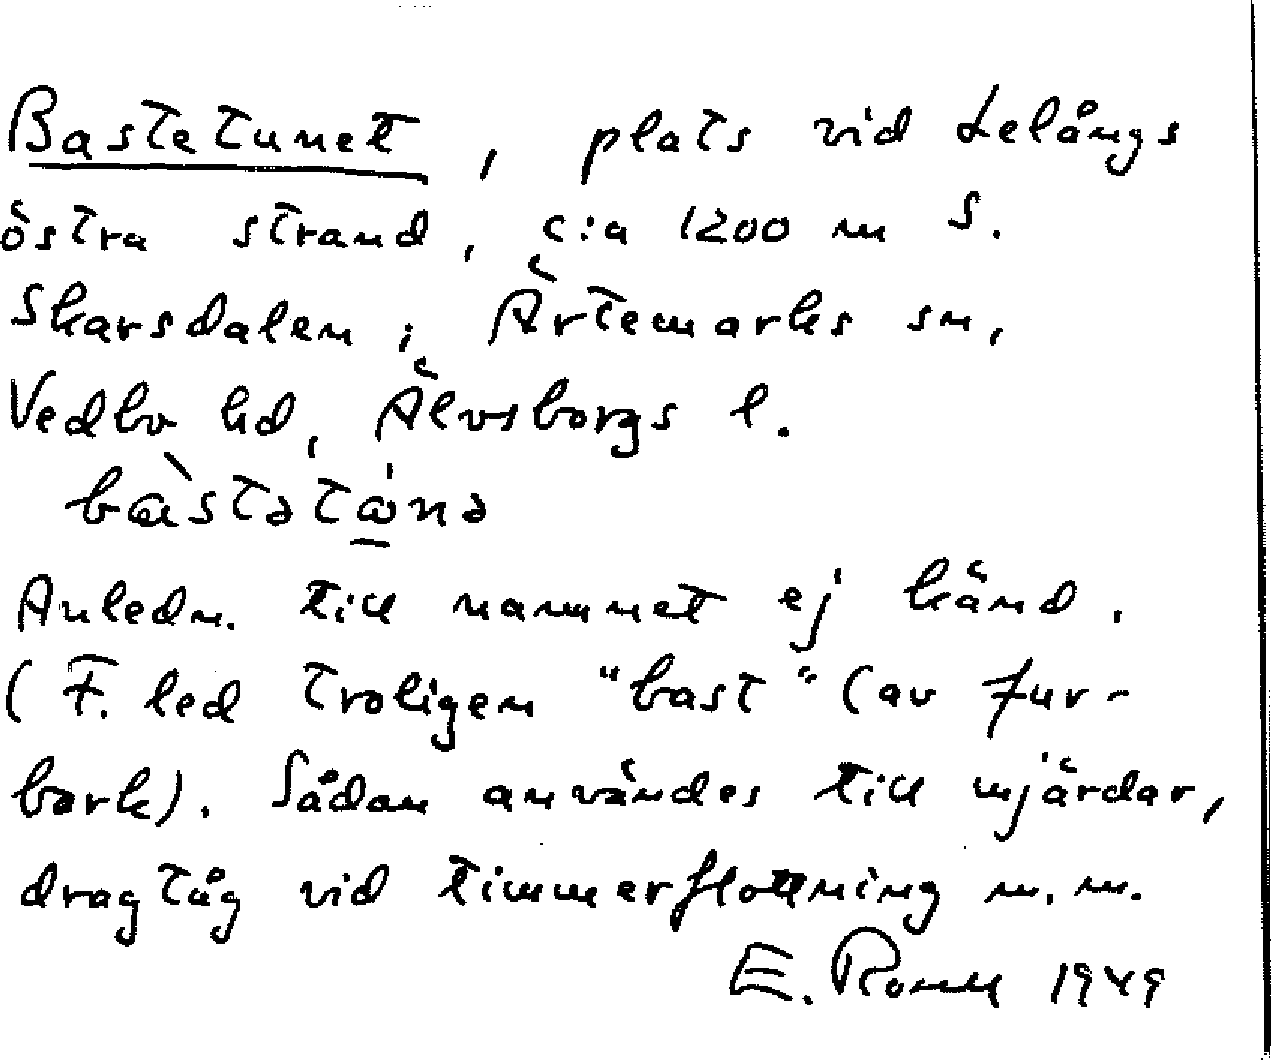 Bastetunet, plats vid Lelångs
östra strand, c:a 1200 m S.
Skarsdalen i Ärtemarks sn,
Vedbo hd, Älvsborgs l.
Anledn. till namnet ej känd.
(F. led troligen "bast" (av fur-
bark). Sådan användes till mjärdar,
dragtåg vid timmerflottning m.m.
E. 1949